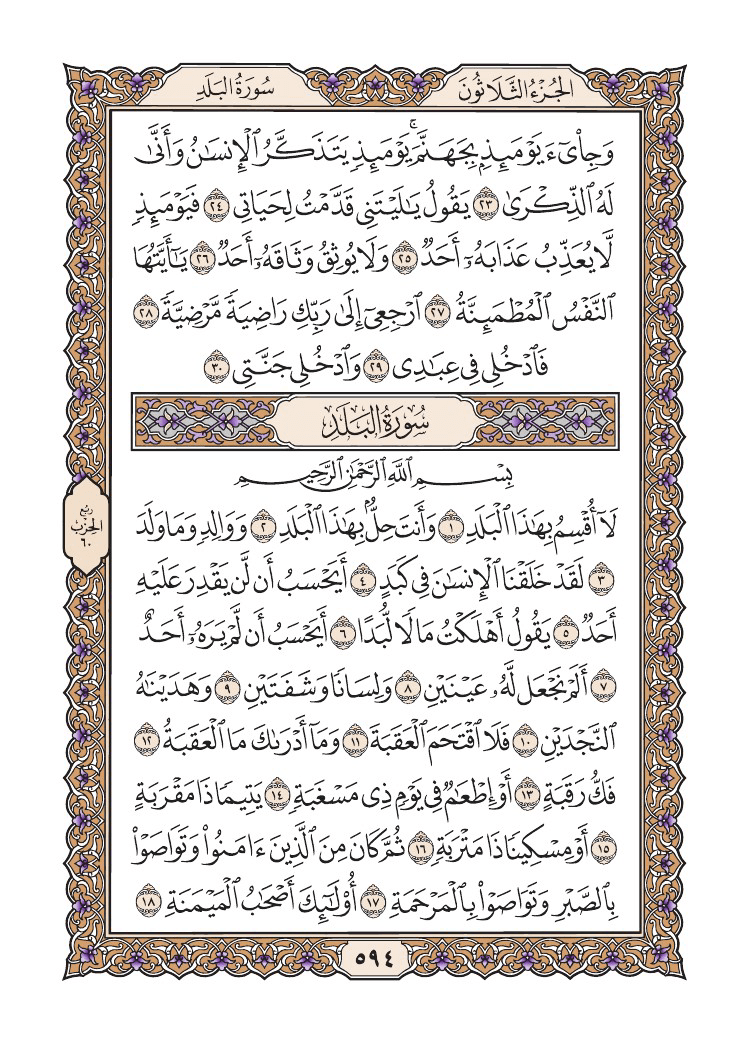 الجُزْءُ الثَّلَاثُونَ
سُورَةُ البَلَدِ
وَجِاْيٓءَ يَوْمَئِذِۭ بِجَهَنَّمَۚ يَوْمَئِذٖ يَتَذَكَّرُ ٱلۡإِنسَٰنُ وَأَنَّىٰ
لَهُ ٱلذِّكۡرَىٰ ٢٣ يَقُولُ يَٰلَيۡتَنِي قَدَّمۡتُ لِحَيَاتِي ٢٤ فَيَوۡمَئِذٖ
لَّا يُعَذِّبُ عَذَابَهُۥٓ أَحَدٞ ٢٥ وَلَا يُوثِقُ وَثَاقَهُۥٓ أَحَدٞ ٢٦ يَٰٓأَيَّتُهَا
ٱلنَّفۡسُ ٱلۡمُطۡمَئِنَّةُ ٢٧ ٱرۡجِعِيٓ إِلَىٰ رَبِّكِ رَاضِيَةٗ مَّرۡضِيَّةٗ ٢٨
فَٱدۡخُلِي فِي عِبَٰدِي ٢٩ وَٱدۡخُلِي جَنَّتِي ٣٠
سُورَةُ البَلَدِ
بِسۡمِ ٱللَّهِ ٱلرَّحۡمَٰنِ ٱلرَّحِيمِ
لَآ أُقۡسِمُ بِهَٰذَا ٱلۡبَلَدِ ١ وَأَنتَ حِلُّۢ بِهَٰذَا ٱلۡبَلَدِ ٢ وَوَالِدٖ وَمَا وَلَدَ
٣ لَقَدۡ خَلَقۡنَا ٱلۡإِنسَٰنَ فِي كَبَدٍ ٤ أَيَحۡسَبُ أَن لَّن يَقۡدِرَ عَلَيۡهِ
أَحَدٞ ٥ يَقُولُ أَهۡلَكۡتُ مَالٗا لُّبَدًا ٦ أَيَحۡسَبُ أَن لَّمۡ يَرَهُۥٓ أَحَدٌ
٧ أَلَمۡ نَجۡعَل لَّهُۥ عَيۡنَيۡنِ ٨ وَلِسَانٗا وَشَفَتَيۡنِ ٩ وَهَدَيۡنَٰهُ
ٱلنَّجۡدَيۡنِ ١٠ فَلَا ٱقۡتَحَمَ ٱلۡعَقَبَةَ ١١ وَمَآ أَدۡرَىٰكَ مَا ٱلۡعَقَبَةُ ١٢
فَكُّ رَقَبَةٍ ١٣ أَوۡ إِطۡعَٰمٞ فِي يَوۡمٖ ذِي مَسۡغَبَةٖ ١٤ يَتِيمٗا ذَا مَقۡرَبَةٍ
١٥ أَوۡ مِسۡكِينٗا ذَا مَتۡرَبَةٖ ١٦ ثُمَّ كَانَ مِنَ ٱلَّذِينَ ءَامَنُواْ وَتَوَاصَوۡاْ
بِٱلصَّبۡرِ وَتَوَاصَوۡاْ بِٱلۡمَرۡحَمَةِ ١٧ أُوْلَٰٓئِكَ أَصۡحَٰبُ ٱلۡمَيۡمَنَةِ ١٨
رُبْعُ
الحِزْب
٦٠
٥٩٤